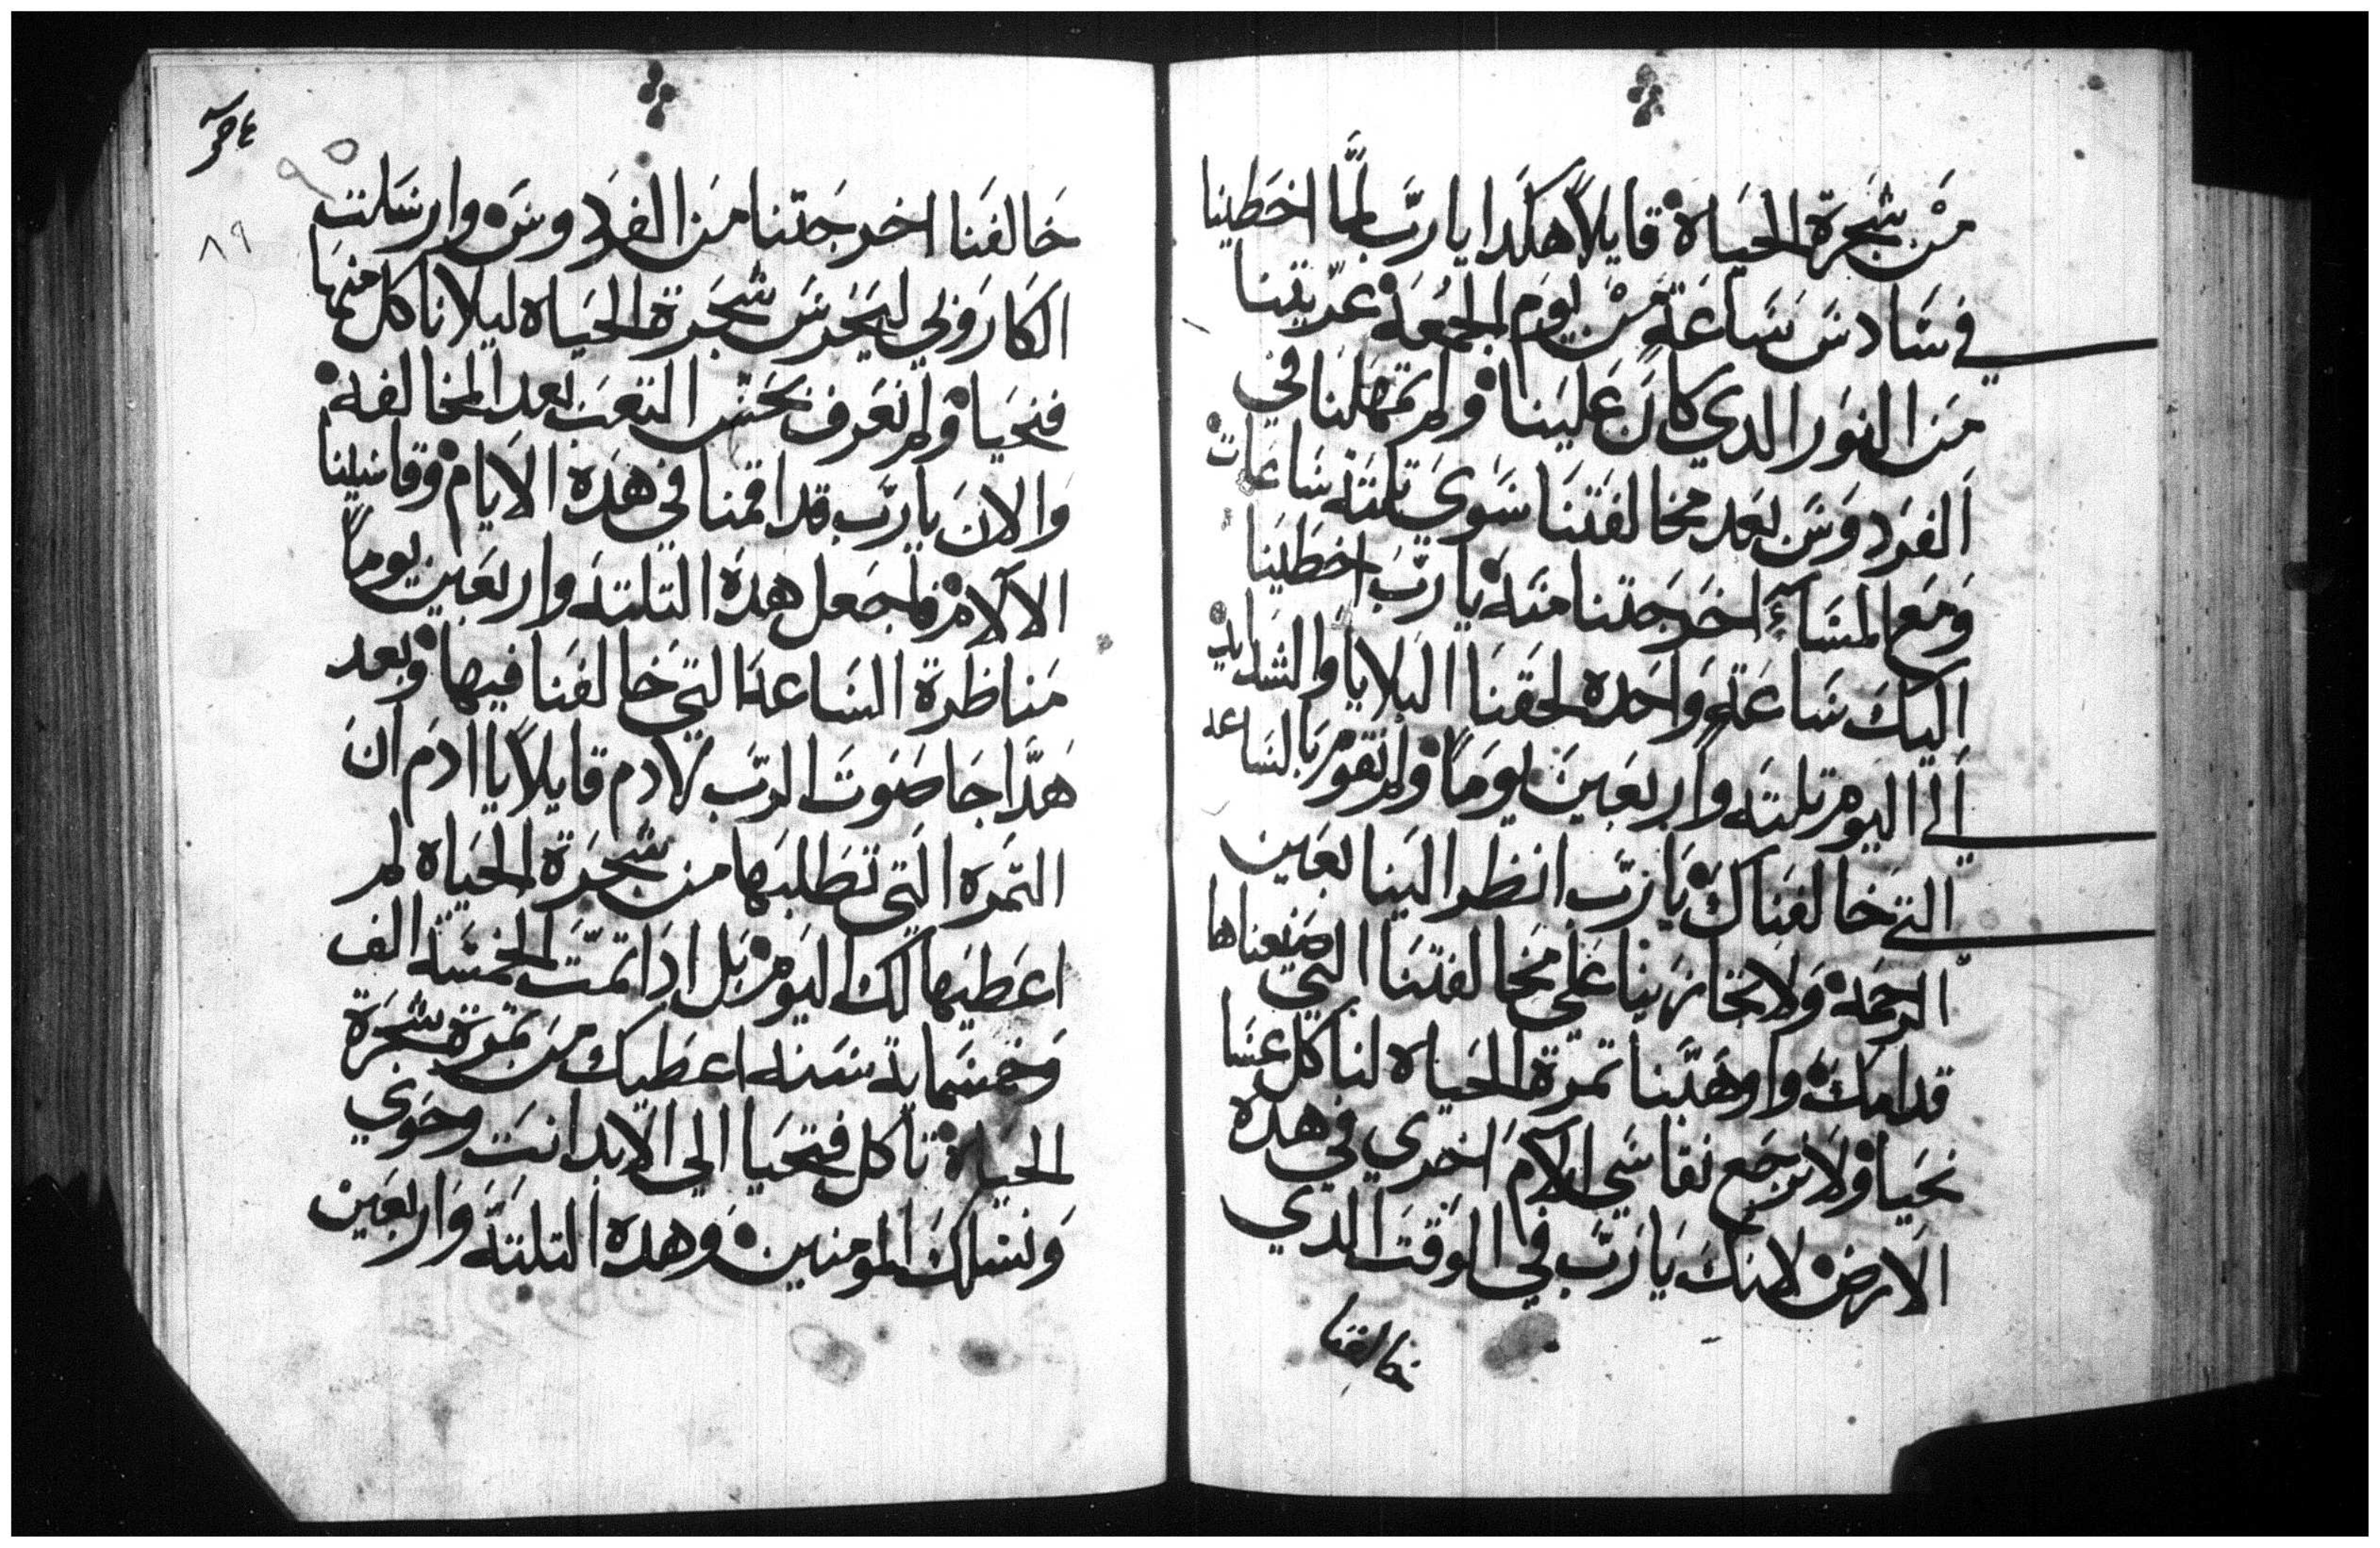 من شجرة الحياة قايلاً هكدا يا ربّ لمَّا اخطينا
في سادس ساعة من يوم الجمعة عرّيتنا
من النور الدي كان علينا ولم تمهلنا في
الفردوس بعد مخالفتنا سوي تلتة ساعات
ومع المسآءِ اخرجتنا منه يا ربّ اخطينا
اليك ساعةٍ واحده لحقنا البلايا والشدايد
الي اليوم تلته واربعين يوماً ولم تقوم بالساعه
التي خالفناك يا ربّ انظر الينا بعين
الرحمة ولا تجازينا علي مخالفتنا التي صنعناها
قدامك واوهبّنا تمرة الحياه لناكل عسا
نحيا ولا نرجع نقاسي الآم اخري في هده
الارض لانك يا ربّ في الوقت الدي
خالفنا
خالفنا اخرجتنا من الفردوس وارسلت
الكاروبي ليحرس شجرة الحياه ليلا ناكل منها
فنحيا ولم نعرف نحس التعب بعد المخالفة
والان يا ربّ قد اقمنا في هده الايام وقاسينا
الآلام فاجعل هده التلتة واربعين يوماً
مناظرة الساعة التي خالفنا فيها وبعد
هدا جا صوت الربّ لادم قايلاً يا ادم ان
التمره التي تطلبها من شجرة الحياه لم
اعطيها لك اليوم بل ادا تمّت الخمسة الف
وخمسماية سنه اعطيك من تمرة شجرة
الحياة تاكل فتحيا الي الابد انت وحوي
ونسلك المومنين وهده التلتة واربعين
٨٩